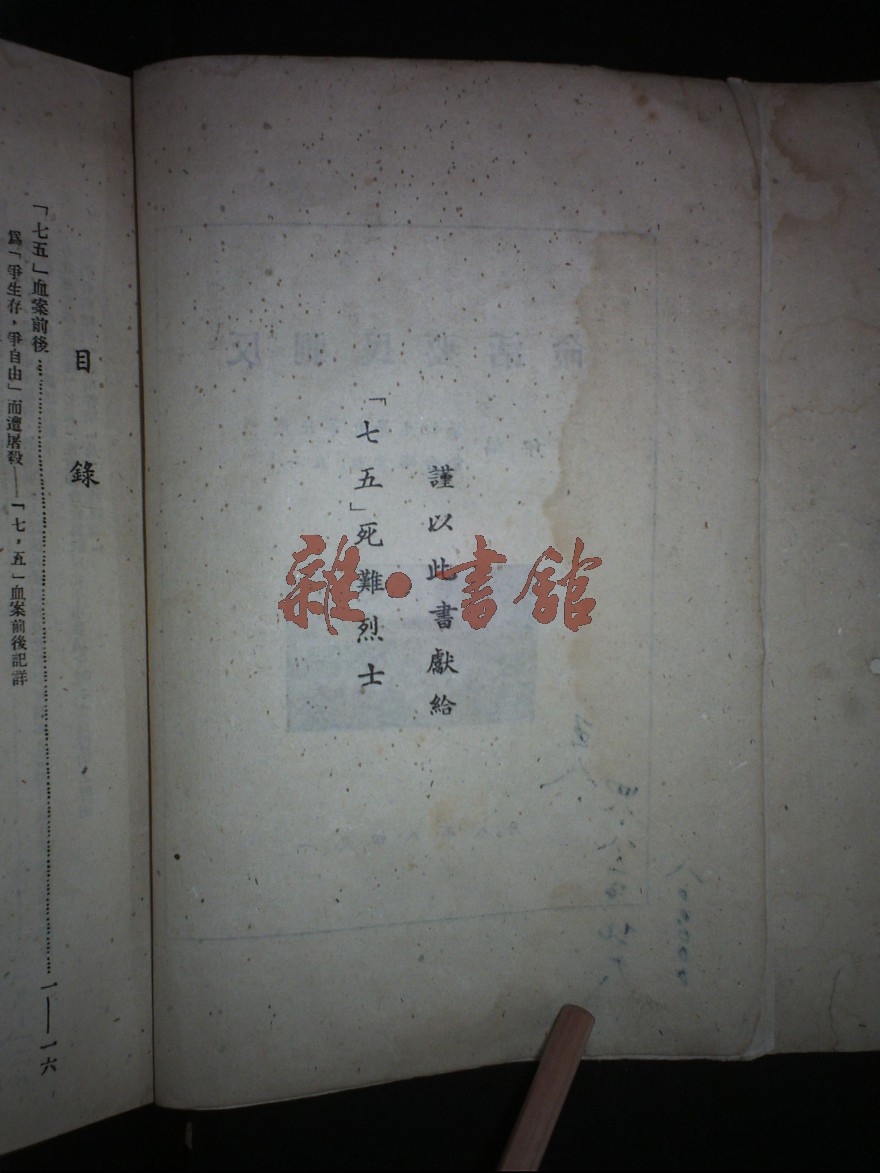 謹以此書獻給
「七五」死難烈士
雜·書館
目錄
「七五」血案前後……一——一六
爲「爭生存，爭自由」而遭屠殺——「七，五」血案前後記詳